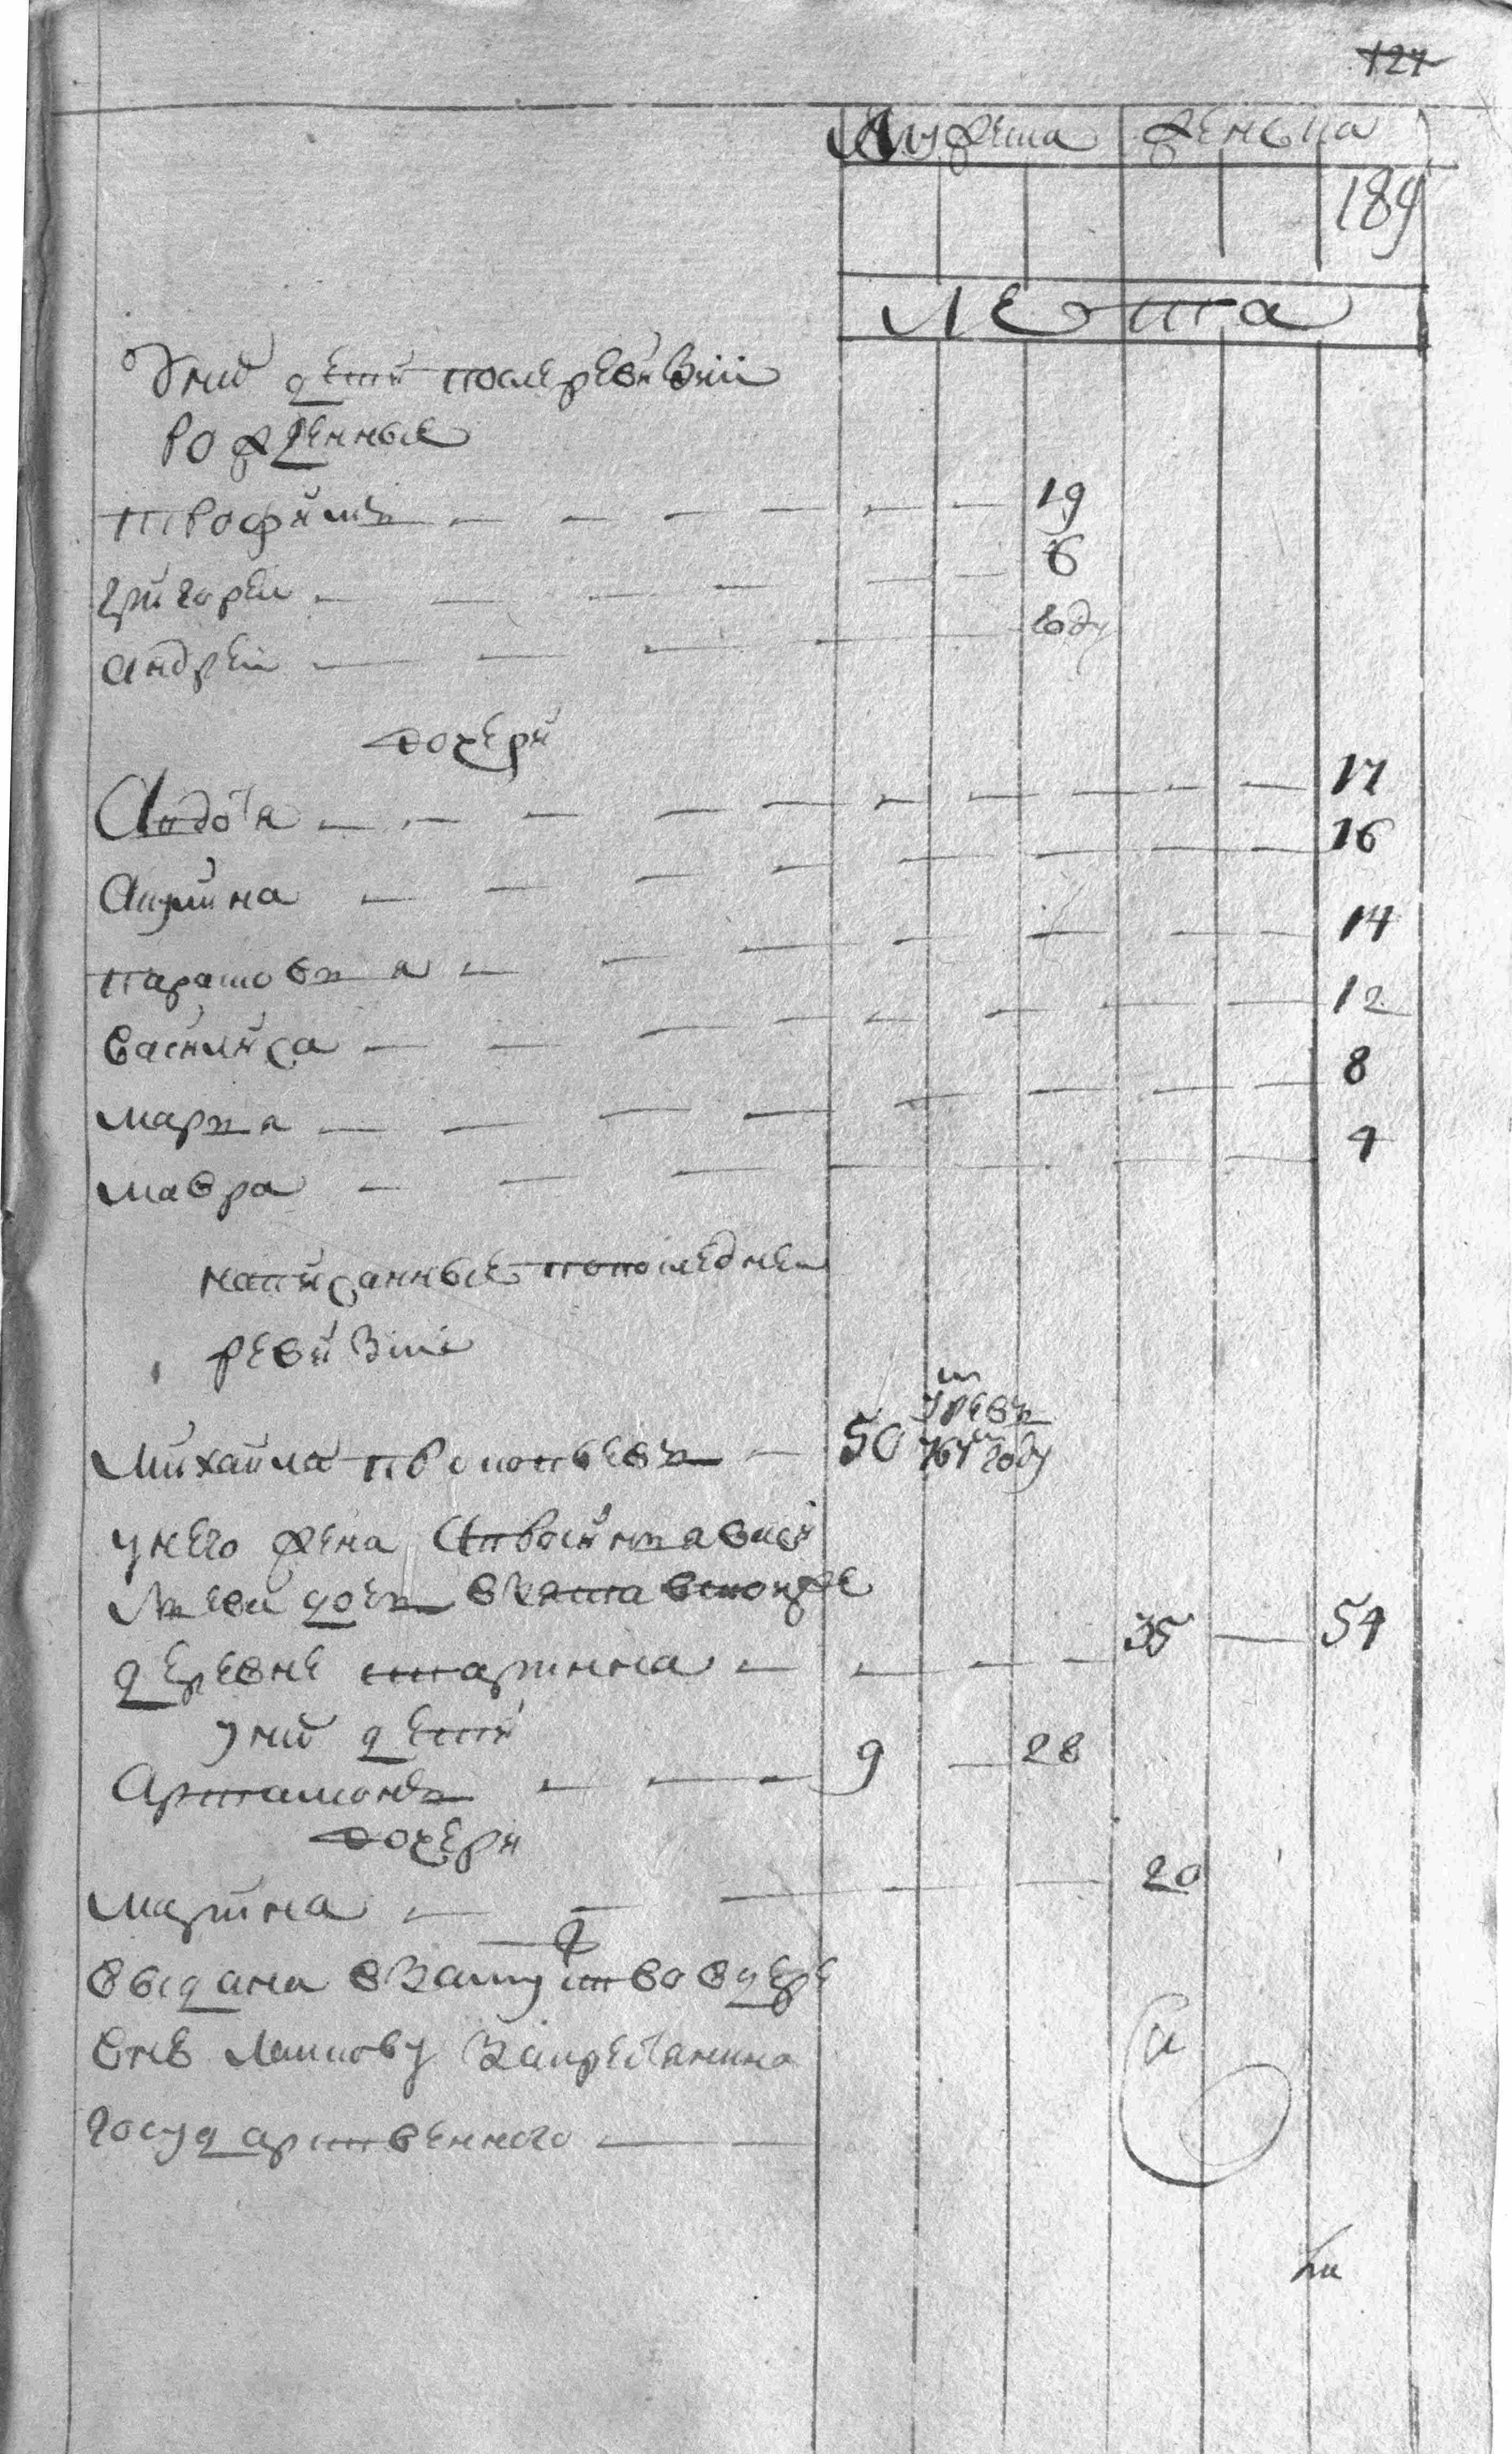 127
Мужеска женска
189
Лета
У них дети после ревизии
рожденные
трофимъ 19
григореи 6
андреи году
дочери
Авдотя 17
Акулина 16
парасковья 14
василиса 12
марья 8
мавра 4
написанные по последнеи
ревизии
Михаила прокопьевъ 50 умревъ 767 году
у него жена
взята в тои же
деревне старинна 35 54
у них дети
Артамонъ 9 28
дочери
марина 20
выдана в замужство в дере
вню кову за крестьянина
государственного